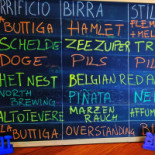 RRIFICIO BIRRA STIL
BUTTIGA HAMLET FLEM
+MEL
SCHELDE ZEEZUIPER TR
DOGE PILS PI
HET NEST BELGIAN RED A
NORTH BREWING PIÑATA NE
ALTOTEVERE MARZEN RAUCH AFFUM
LA BUTTIGA OVERSTANDING BI